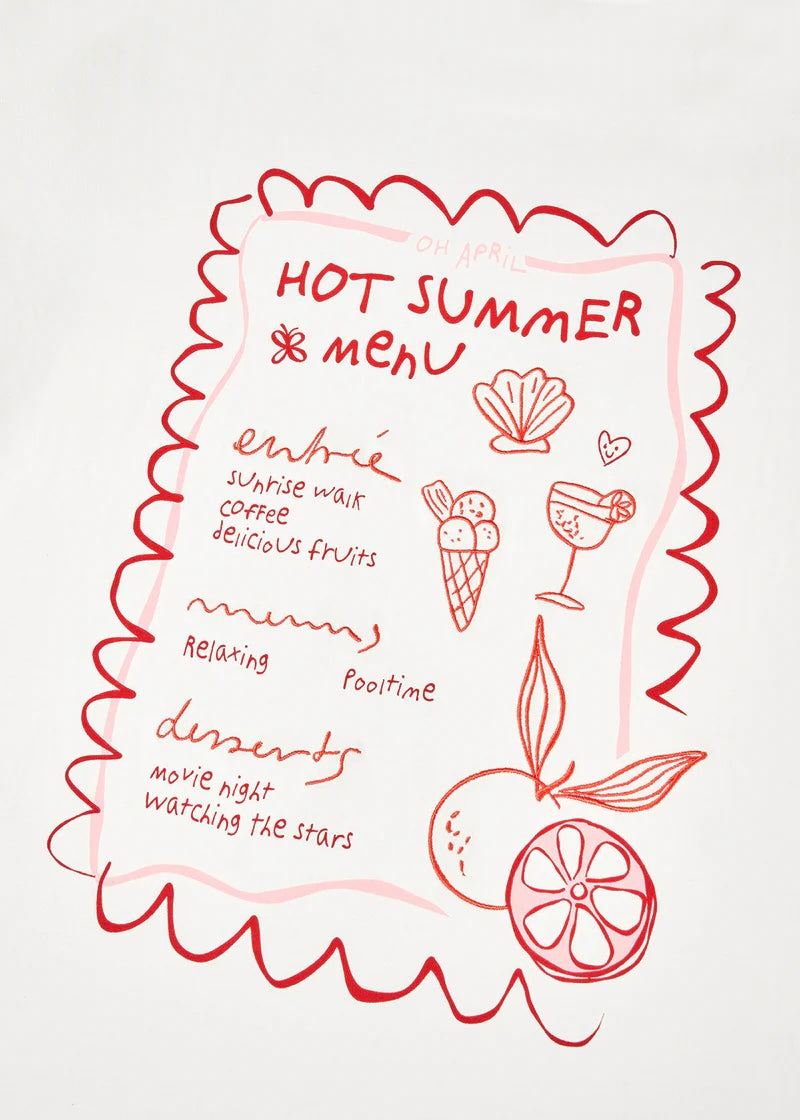 OH APRiL
HOT SUMMER
menU
entrée
sunrise walk
coffee
delicious fruits
Relaxing
Pooltime
desserts
movie night
watching the stars